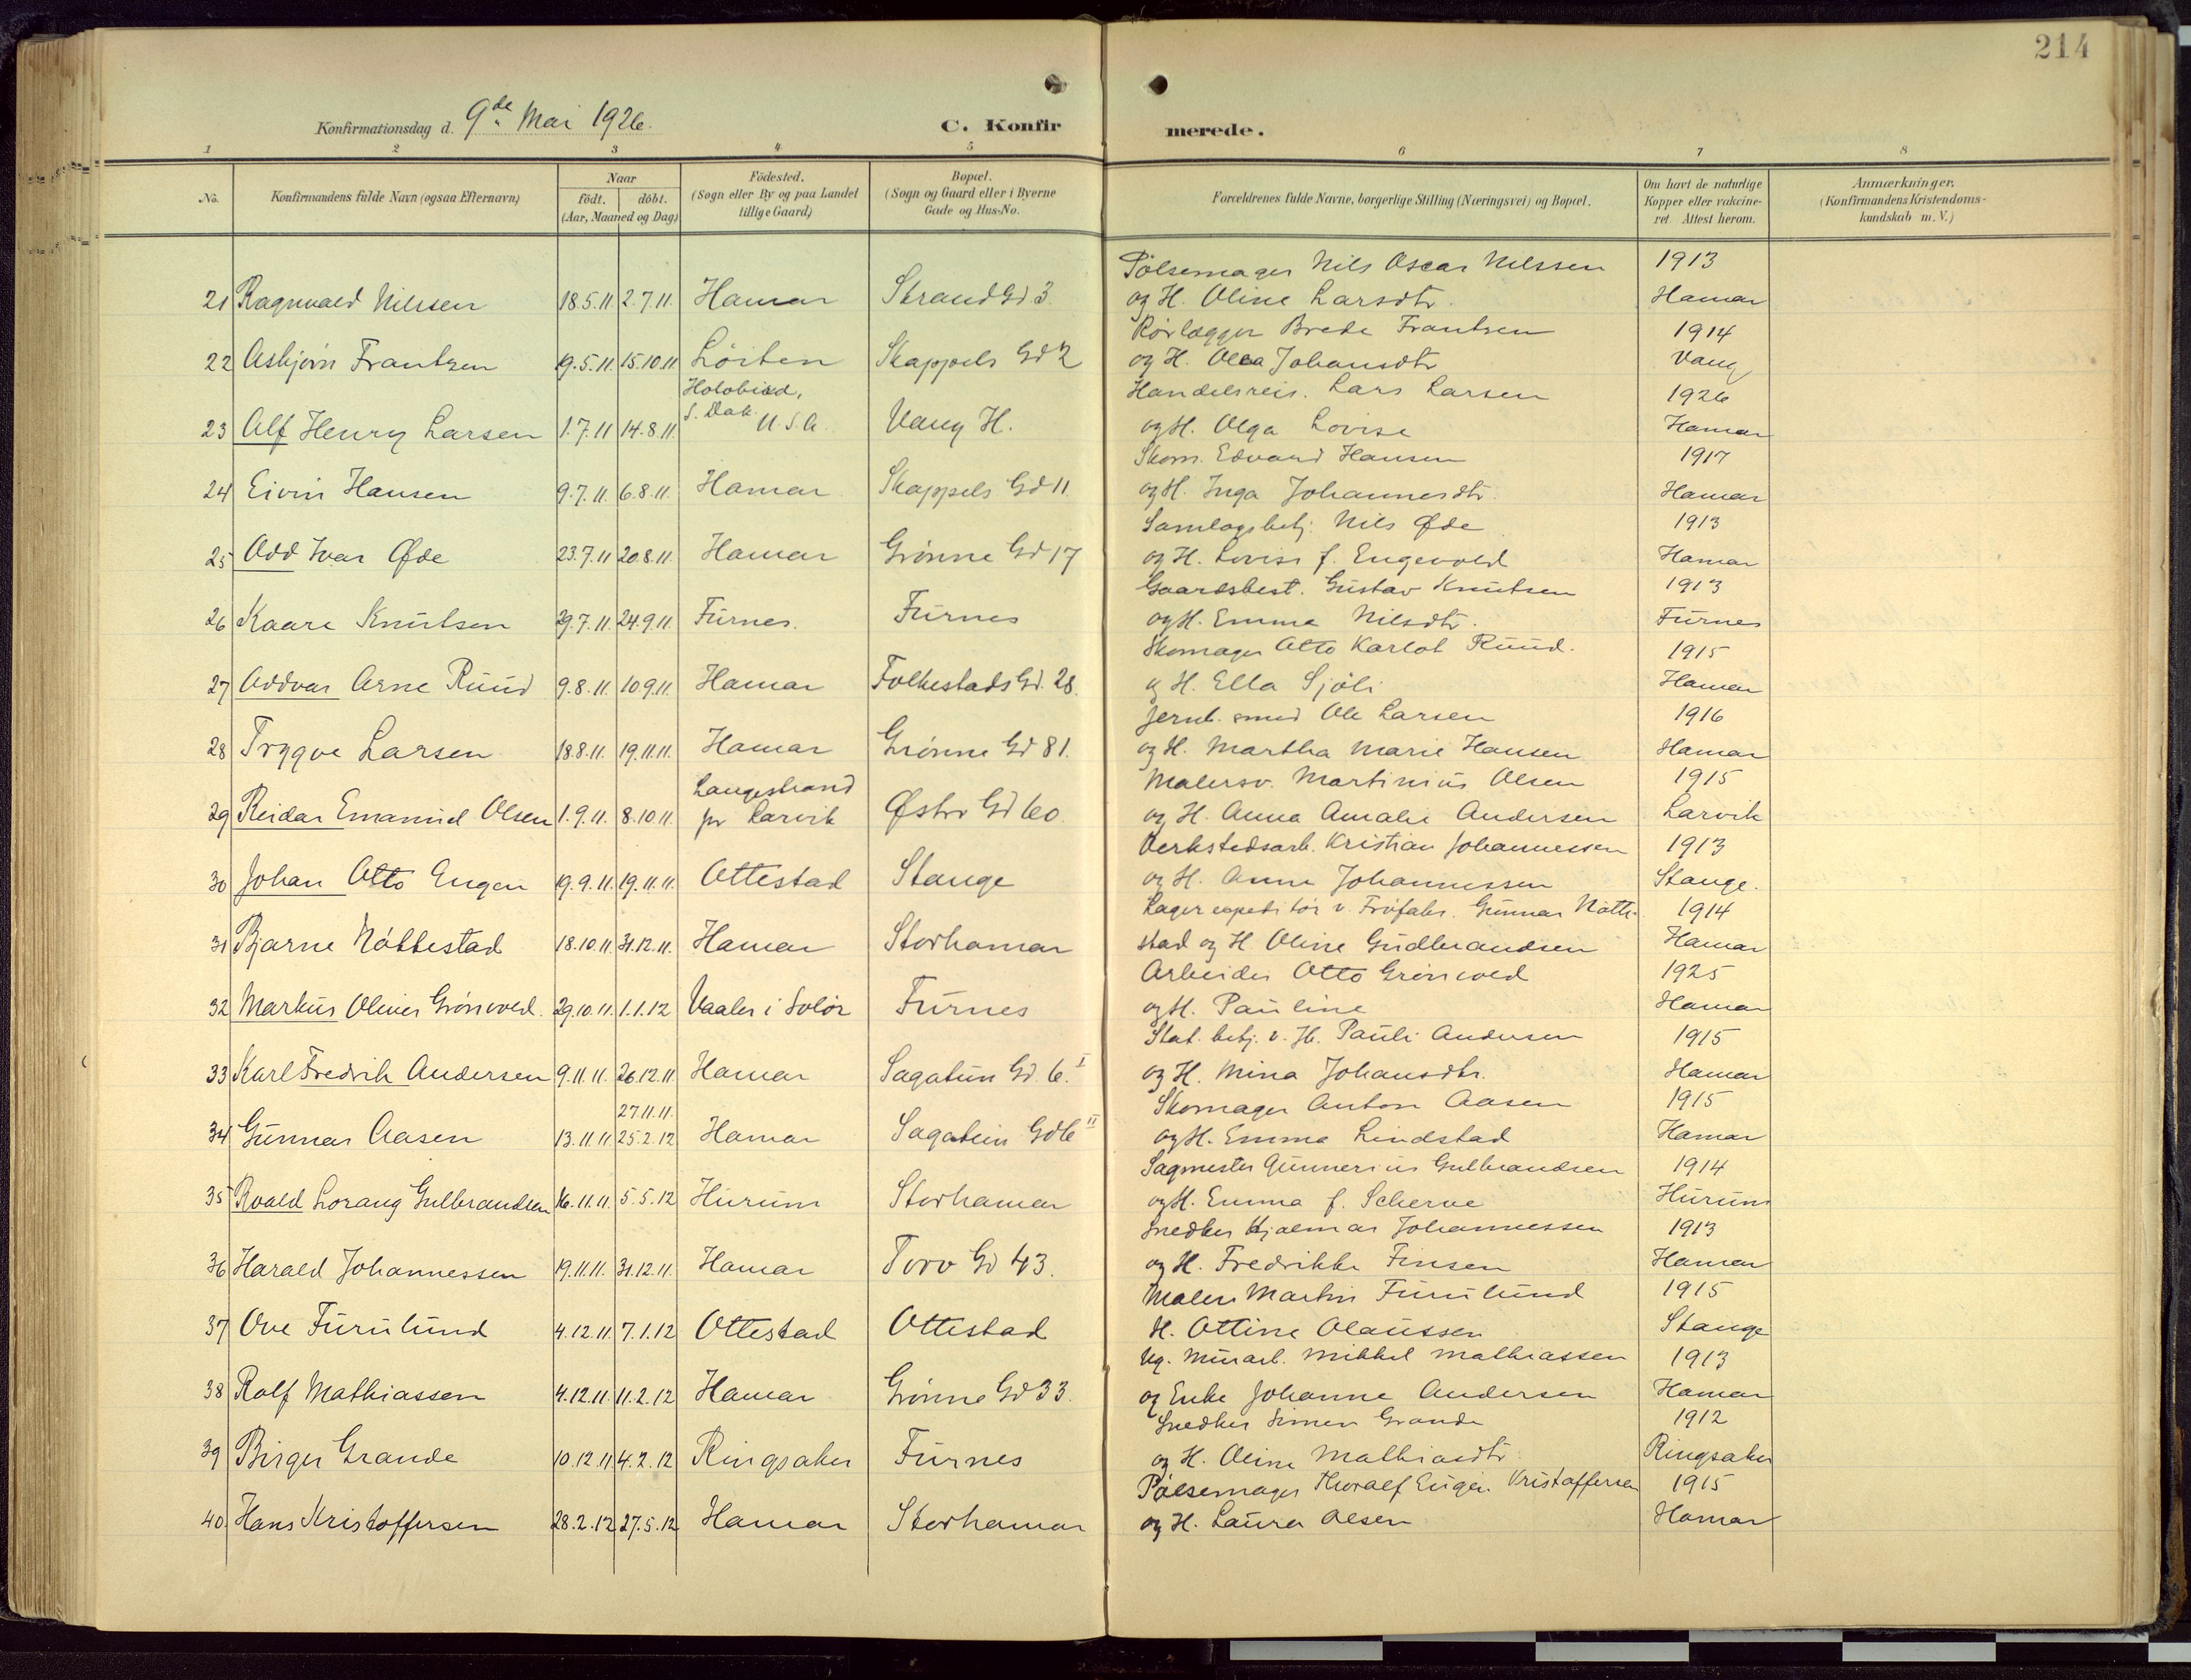 214
Konfirmationsdag d. 9de Mai 1926.
C. Konfirmerede.
1 2 3 4 5 6 7 8
No.
Konfirmandens fulde Navn (ogsaa Efternavn)
Naar
födt. döbt.
(Aar, Maaned og Dag)
Födested.
(Sogn eller By og paa Landet
tillige Gaard)
Bopæl.
(Sogn og Gaard eller i Byerne
Gade og Hus-No.
Forældrenes fulde Navne, borgerlige Stilling (Næringsvei) og Bopæl.
Om havt de naturlige
Kopper eller vakcine-
ret. Attest herom.
Anmærkninger.
(Konfirmandens Kristendoms-
kundskab m. V.)
Pölsemager Nils Oscar Nilssen 1913
21 Ragnvald Nilssen 18.5.11. 2.7.11. Hamar Strand Gd 3. og H. Oline Larsdtr. Hamar
Rörlægger Brede Frantzen 1914
22 Asbjörn Frantzen 19.5.11. 15.10.11 Löiten Skappels Gd 2 og H. Olea Johansdtr Vang
Holobird,
S. Dak. U.S.A.
Handelsreis. Lars Larsen 1926
23 Alf Henry Larsen 1.7.11 14.8.11. Vang H. og H. Olga Lovise Hamar
Skom. Edvard Hansen 1917
24 Eivin Hansen 9.7.11. 6.8.11. Hamar Skappels Gd 11 og H. Inga Johannesdtr. Hamar
Samlagsbetj. Nils Øde 1913
25 Odd Ivar Øde 23.7.11 20.8.11. Hamar Grönne Gd 17 og H. Lovise f. Engevold Hamar
Gaardsbest. Gustav Knutsen 1913
26 Kaare Knutsen 29.7.11. 24.9.11 Furnes. Furnes og H. Emma Nilsdtr. Furnes
Skomager Otto Karlot Ruud. 1915
27 Oddvar Arne Ruud 9.8.11. 10.9.11. Hamar Folkestads Gd. 28. og H. Ella Sjöli Hamar
Jernb. smed Ole Larsen 1916
28 Trygve Larsen 18.8.11. 19.11.11. Hamar Grönne Gd 81. og H. Martha Marie Hansen Hamar
Langestrand
Malersv. Martinius Olsen 1915
29 Reidar Emanuel Olsen 1.9.11. 8.10.11. pr Larvik Østre Gd 60. og H. Anna Amalie Andersen Larvik
Verkstedsarb. Kristian Johannessen 1913
30 Johan Otto Eugen 19.9.11. 19.11.11. Ottestad Stange og H. Anna Johannessen Stange.
Lagerexpeditör v. Fröfabr. Gunnar Nötte- 1914
31 Bjarne Nöttestad 18.10.11. 31.12.11. Hamar Storhamar stad og H. Oline Gudbrandsen Hamar
Arbeider Otto Grönvold 1925
32 Markus Oliver Grönvold. 29.10.11. 1.1.12 Vaaler i Solör Furnes og H. Pauline Hamar
Stat. betj. v. H. Pauli Andersen 1915
33 Karl Fredrik Andersen 9.11.11. 26.12.11 Hamar Sagatun Gd. 6. I og H. Mina Johansdtr. Hamar
27.11.11.
Skomager Anton Aasen 1915
34 Gunnar Aasen 13.11.11 25.2.12 Hamar Sagatun Gd 6 II og H. Emma Lindstad Hamar
Sagmester Gunnerius Gulbrandsen 1914
35 Roald Lorang Gulbrandsen 16.11.11. 5.5.12 Hurum Storhamar og H. Emma f. Scherve Hurum
Snedker Hjalmar Johannessen 1913
36 Harald Johannessen 19.11.11. 31.12.11. Hamar Torv Gd 43. og H. Fredrikke Finsen Hamar
Maler Martin Furulund 1915
37 Ove Furulund 4.12.11. 7.1.12 Ottestad Ottestad H. Ottine Olaussen Stange
Ug. Murarb. Mikkel Mathiassen 1913
38 Rolf Mathiassen 4.12.11. 11.2.12 Hamar Grönne Gd 33. og Enke Johanne Andersen Hamar
Snedker Simen Grande 1912
39 Birger Grande 10.12.11. 4.2.12 Ringsaker Furnes og H. Oline Mathiasdtr Ringsaker
Pölsemager Thoralf Eugen Kristoffersen 1915
40. Hans Kristoffersen 28.2.12 27.5.12 Hamar Storhamar og H. Laura Olsen Hamar